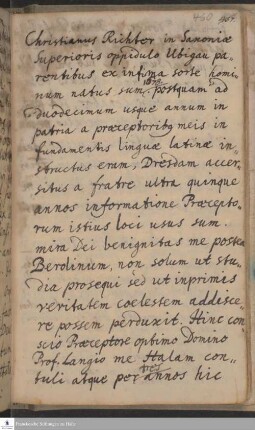 Christianus Richter in Saxoniæ
Superioris oppidulo Ubigau pa-
rentibus ex infima sorte homi-
num natus sum. postquam ad
duodecimum usque annum in
patria a præceptoribq meis in
fundamentis linguæ latinæ in-
structus eram, Dresdam accer-
situs a fratre ultra quinque
annos informatione Præcepto-
rum istius loci usus sum.
mira Dei benignitas me postea
Berolinum, non solum ut stu-
dia prosequi sed ut inprimis
veritatem coelestem addisce-
re possem perduxit. Hinc con
scio Præceptore optimo Domino
Prof. Langio me Halam con-
tuli atque per tres annos hic
Franckesche Stiftungen zu Halle